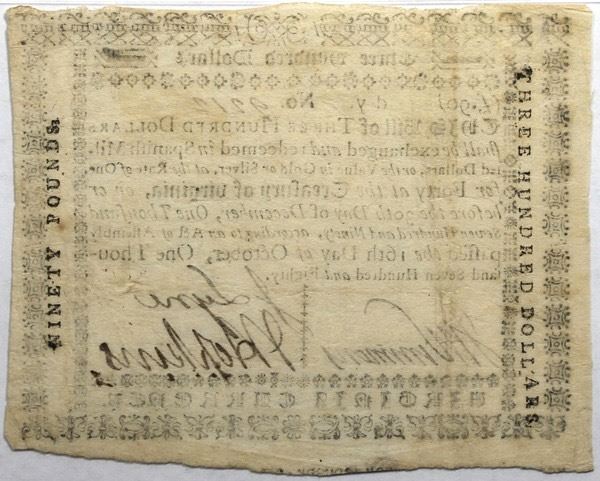 NINETY POUNDS.
THREE HUNDRED DOLLARS.
Three Hundred Dollars
(£.90) No.
THIS Bill of THREE HUNDRED DOLLARS
shall be exchanged and redeemed in Spanish Mil-
led Dollars, or the Value in Gold or Silver, at the Rate of One
for Forty at the Treasury of Virginia, on or
before the 30th Day of December, One Thousand
Seven Hundred and Ninety, according to an Act of Assembly
passed the 16th Day of October, One Thou-
sand Seven Hundred and Eighty.
Lyne
Hopkins
VIRGINIA CURRENCY.